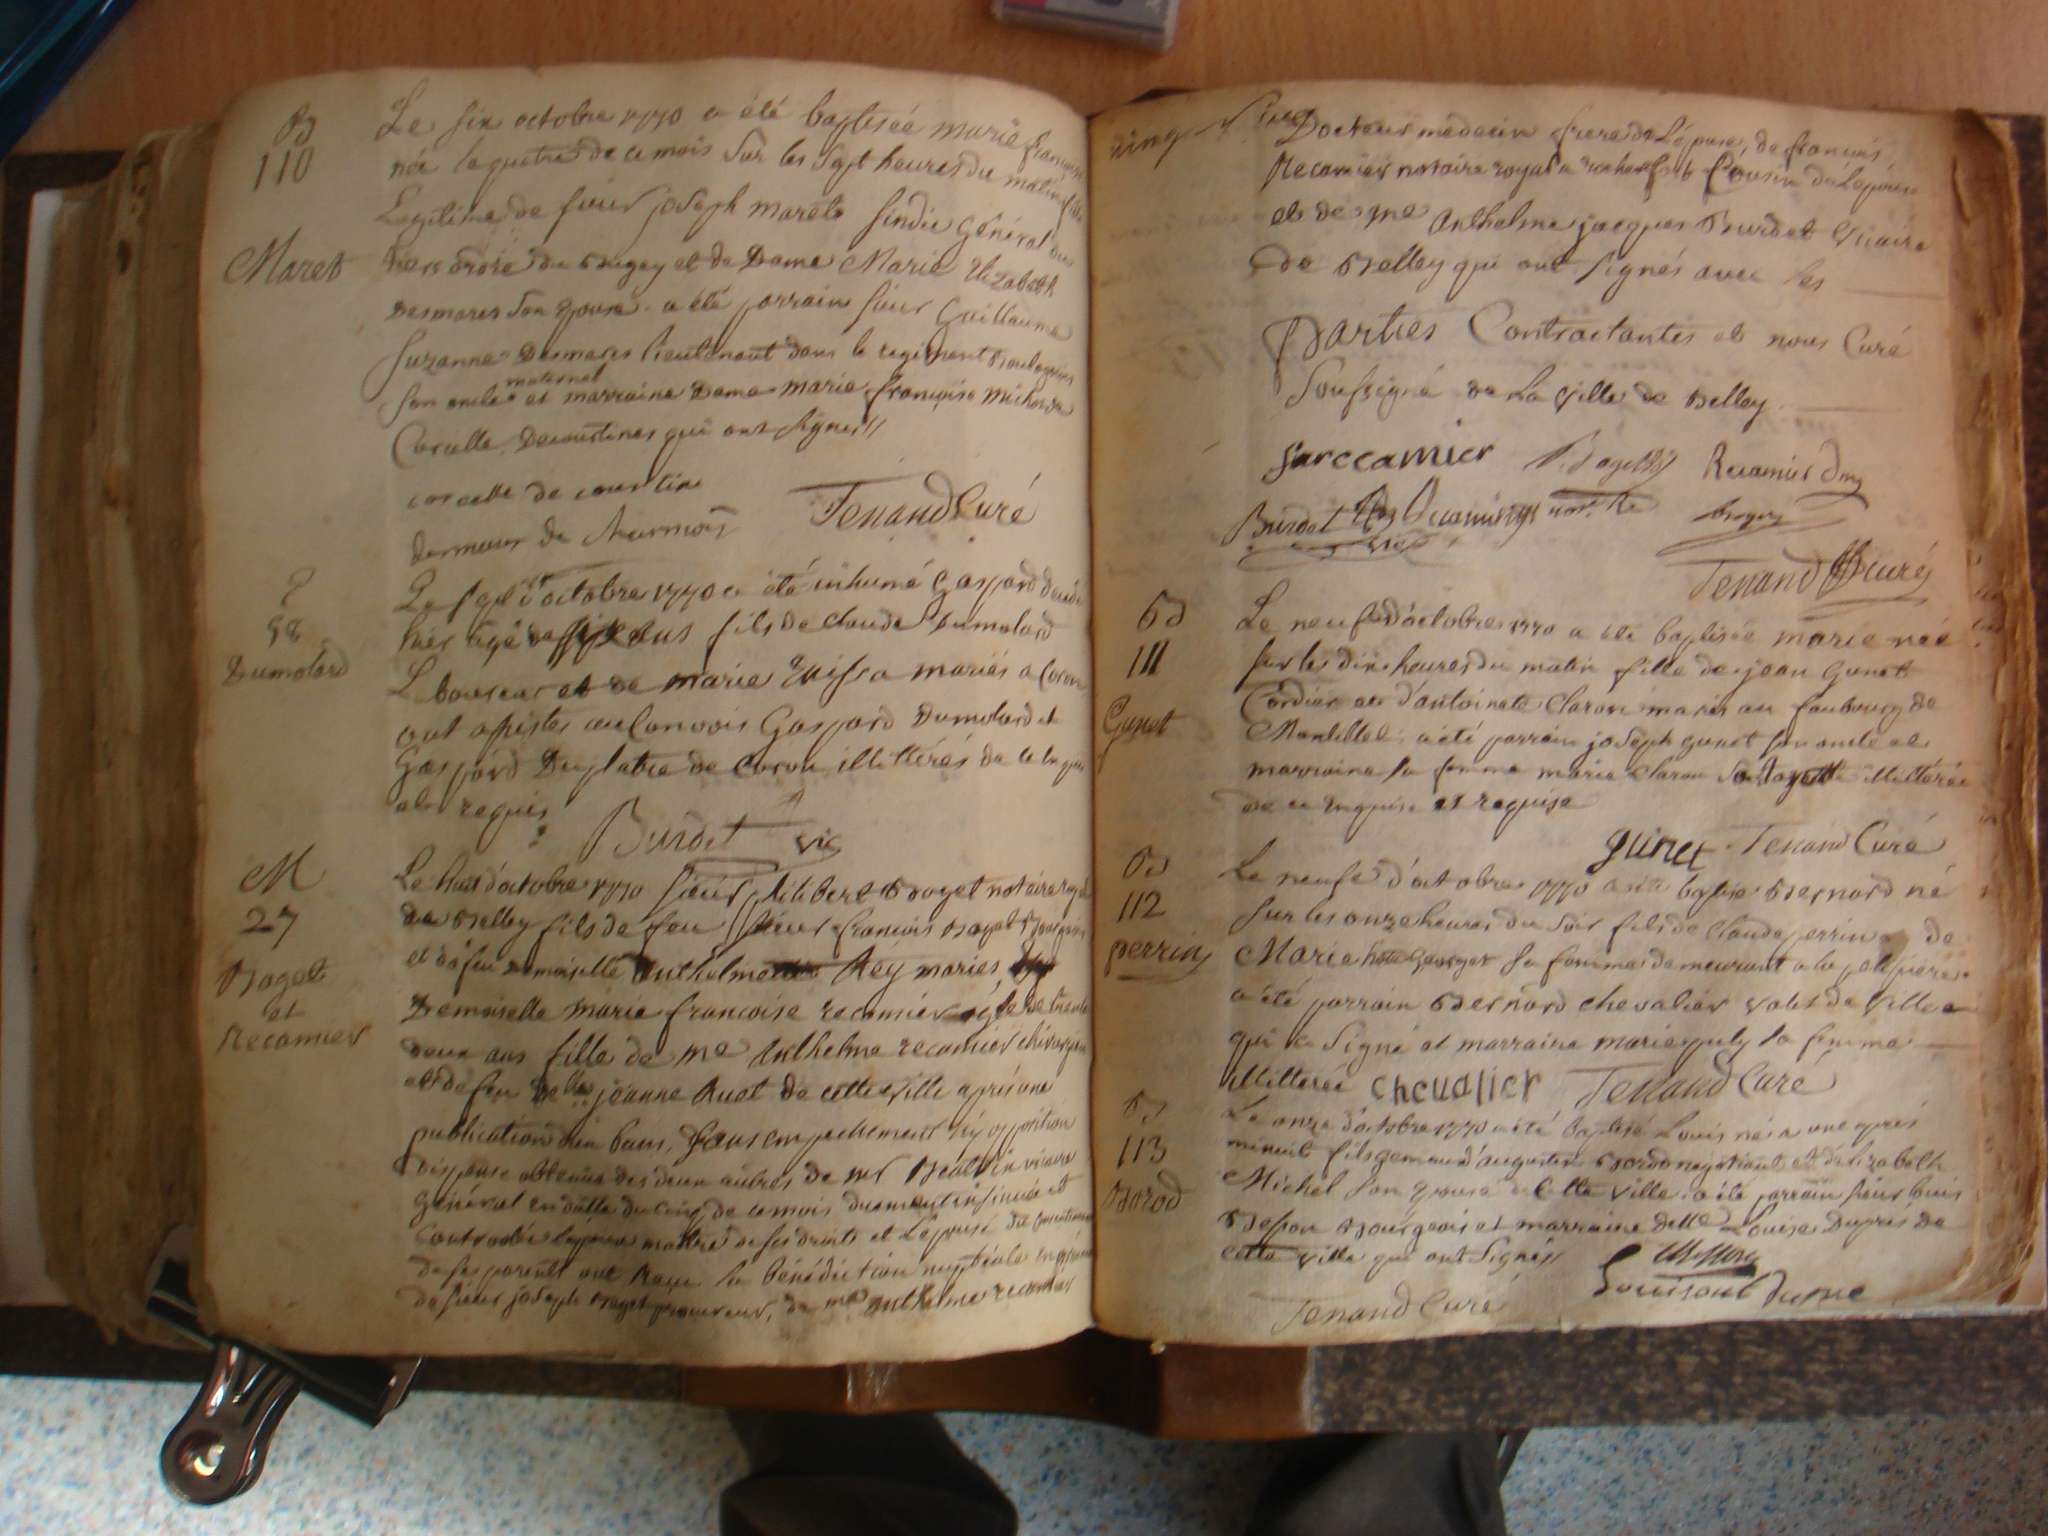 B
110
Maret
Le six octobre 1770 a été baptisée marie françoise
née le quatre de ce mois sur les sept heures du matin fille
Légitime de sieur joseph marets sindic Général du
tiers ordre du Bugey et de Dame Marie Elizabeth
Desmares son épouse. a été parrain sieur Guillaume
Suzanne Desmares lieutenant dans le regiment
son oncle maternel et marraine Dame marie françoise
qui ont signés//
corcelle de courtine
Tenand Curé
58
Dumolard
Le sept d'octobre 1770 a été inhumé Gaspard décédé
hier agé de ans fils de claude Dumolard
Laboureur et de marie mariés a Coron
ont assistés au Convois Gaspard Dumolard et
Gaspard Duplatre de Coron illittérés de ce enquis
et requis
Burdet vic
M
27
Boget
et
Recamier
Le huit d'octobre 1770 sieur philibert Boget notaire royal
de Belley fils de feu sieur françois Boget Bourgeois
et de feu Demoiselle anthelme Rey mariés,
Demoiselle marie françoise recamier agée de trente
deux ans fille de me Anthelme recamier chirurgien
et de feu jeanne Ruet de cette ville après une
publication d'un banc, sans empechement n'y opposition
dispense obtenue des deux autres de mr vicaire
Général en datte du cinq de ce mois duement insinuée et
Controlée l'époux maître de ses droits et L'épouse du
de ses parents ont Reçu la bénédiction nuptiale en présence
de sieur joseph Boget procureur, de me anthelme recamier
Docteur medecin frere de L'épouse, de françois
Recamier notaire royal a rochefort Cousin de L'épouse
et de me Anthelme jacques Burdet Vicaire
de Belley qui ont signés avec les
Parties Contractantes et nous Curé
soussigné de La ville de Belley.
Recamier
Burdet
vic
Boget
Tenand Curé
B
111
Gunet
Le neuf d'octobre 1770 a été baptisée marie née
sur les dix heures du matin fille de jean Gunet
Cordier et d'antoinete claron mariés au faubourg de
a été parrain joseph gunet son oncle et
marraine sa femme marie claron illittérée
de ce enquise et requise
gunet Tenand Curé
B
112
perrin
Le neuf d'octobre 1770 a été baptisé Bernard né
sur les onze heures du soir fils de claude perrin et de
Marie sa femme demeurant a la
a été parrain Bernard chevalier valet de ville
qui a signé et marraine marie sa femme
illitterée cheualier Tenand Curé
B
113
Barod
Le onze d'octobre 1770 a été baptisé Louis né a une après
minuit fils gemeau d'augustin negotiant et d'elizabeth
Michel son épouse de Cette ville. a été parrain sieur Louis
Besson Bourgeois et marraine delle Louise Dupré de
cette ville qui ont signés//
Tenand Curé